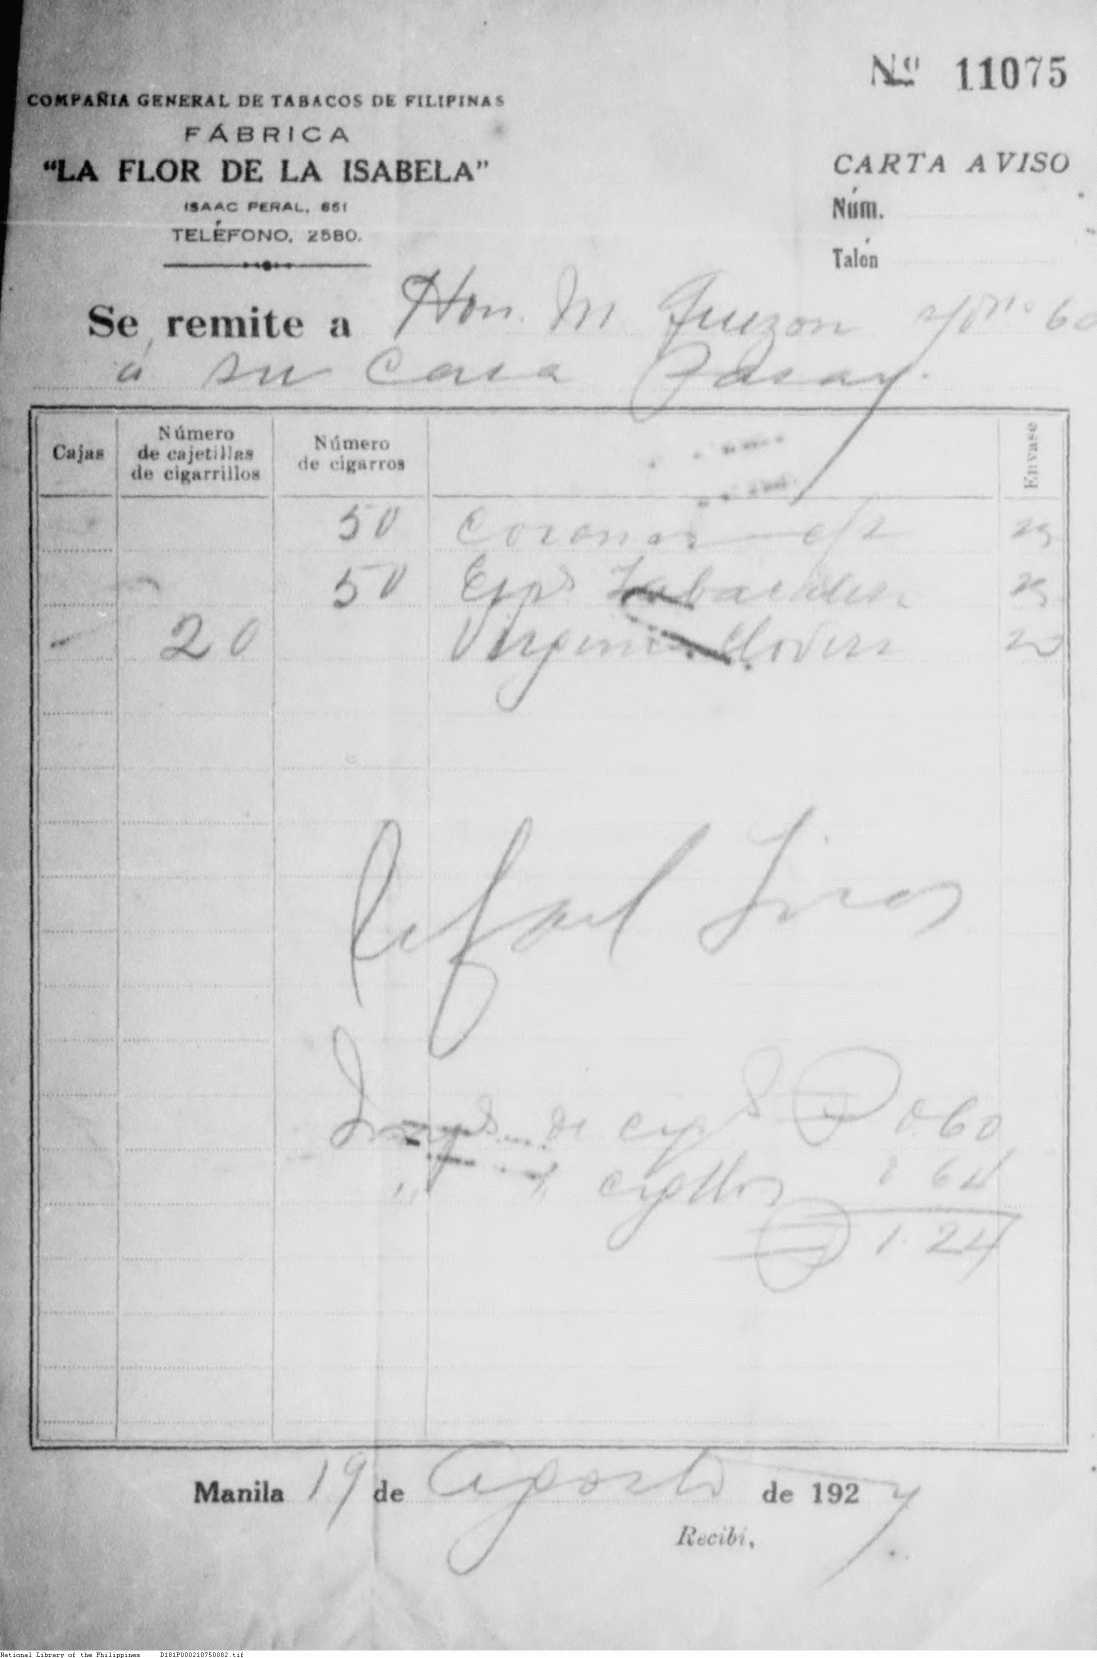 Nº 11075
COMPAÑIA GENERAL DE TABACOS DE FILIPINAS
FÁBRICA
"LA FLOR DE LA ISABELA"
ISAAC PERAL, 551
TELÉFONO, 2580.
CARTA AVISO
Núm.
Talón
Se remite a Hon. M Quezon
á su casa Pasay.
Cajas
Número de cajetillas de cigarrillos
Número de cigarros
Envase
50 Coronas 25
50 Esps 25
20 Virginia 20
Rafael
Imps. de cig 0.60
" " cigllos 0.64
1.24
Manila 19 de Agosto de 1927
Recibí,
National Library of the Philippines D181P000210750002.tif